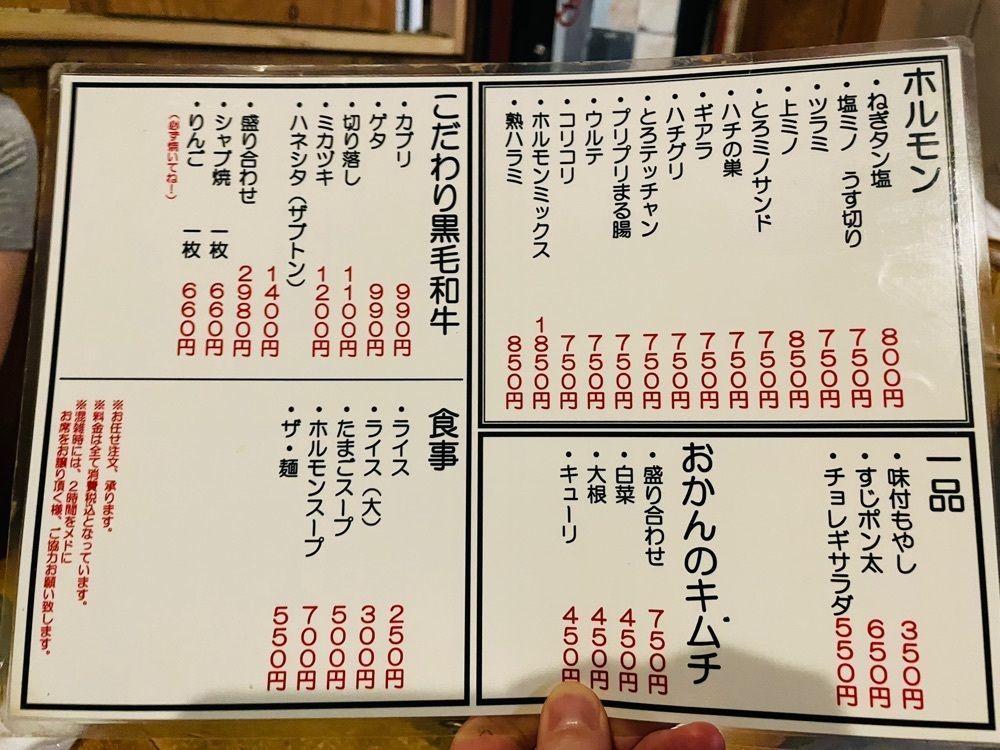 ホルモン
・ねぎタン塩 800円
・塩ミノ うす切り 750円
・ツラミ 750円
・上ミノ 850円
・とろミノサンド 750円
・ハチの巣 750円
・ギアラ 750円
・ハチグリ 750円
・とろテッチャン 750円
・プリプリまる腸 750円
・ウルテ 750円
・コリコリ 750円
・ホルモンミックス 1850円
・熟ハラミ 850円
一品
・味付もやし 350円
・すじポン太 650円
・チョレギサラダ 550円
おかんのキムチ
・盛り合わせ 750円
・白菜 450円
・大根 450円
・キューリ 450円
こだわり黒毛和牛
・カブリ 990円
・ゲタ 990円
・切り落し 1100円
・ミカヅキ 1200円
・ハネシタ（ザブトン） 1400円
・盛り合わせ 2980円
・シャブ焼 一枚 660円
・りんご 一枚 660円
（必ず焼いてね！）
食事
・ライス 250円
・ライス（大） 300円
・たまごスープ 500円
・ホルモンスープ 700円
・ザ・麺 550円
※お任せ注文、承ります。
※料金は全て消費税込となっています。
※混雑時には、2時間をメドに
お席をお譲り頂く様、ご協力お願い致します。